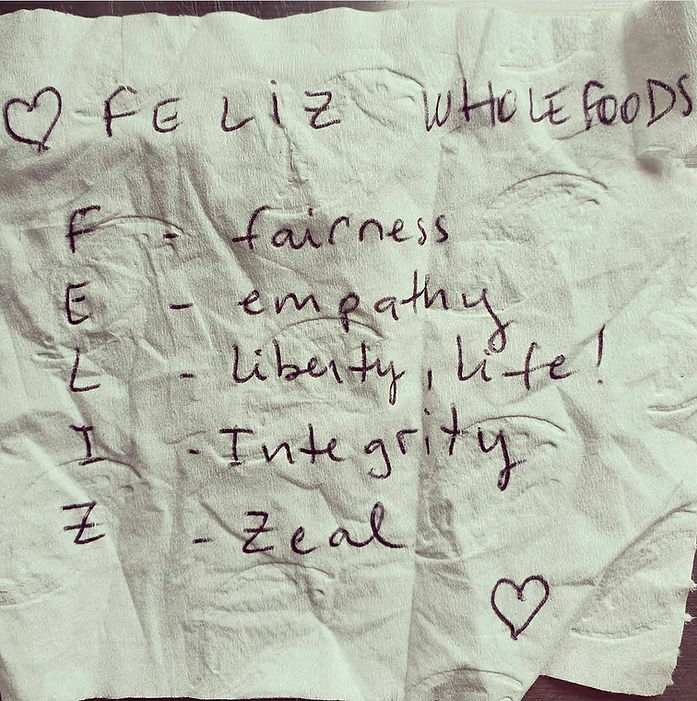 ♡ FELIZ WHOLEFOODS
F - fairness
E - empathy
L - Liberty, Life!
I - Integrity
Z - Zeal
♡